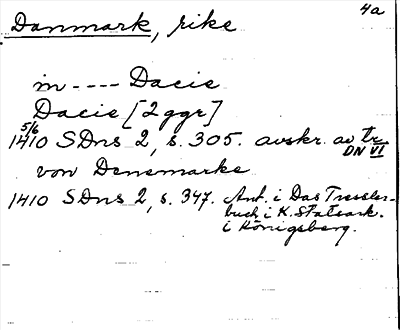 4a
Danmark, rike
in ---- Dacie
Dacie [2 ggr]
5/6
1410 SDns 2, s. 305. avskr. av tr.
DN VI
von Denemarke
1410 SDns 2, s. 347. Ant. i Das Tressler-
buch i K. Statsark.
i Königsberg.